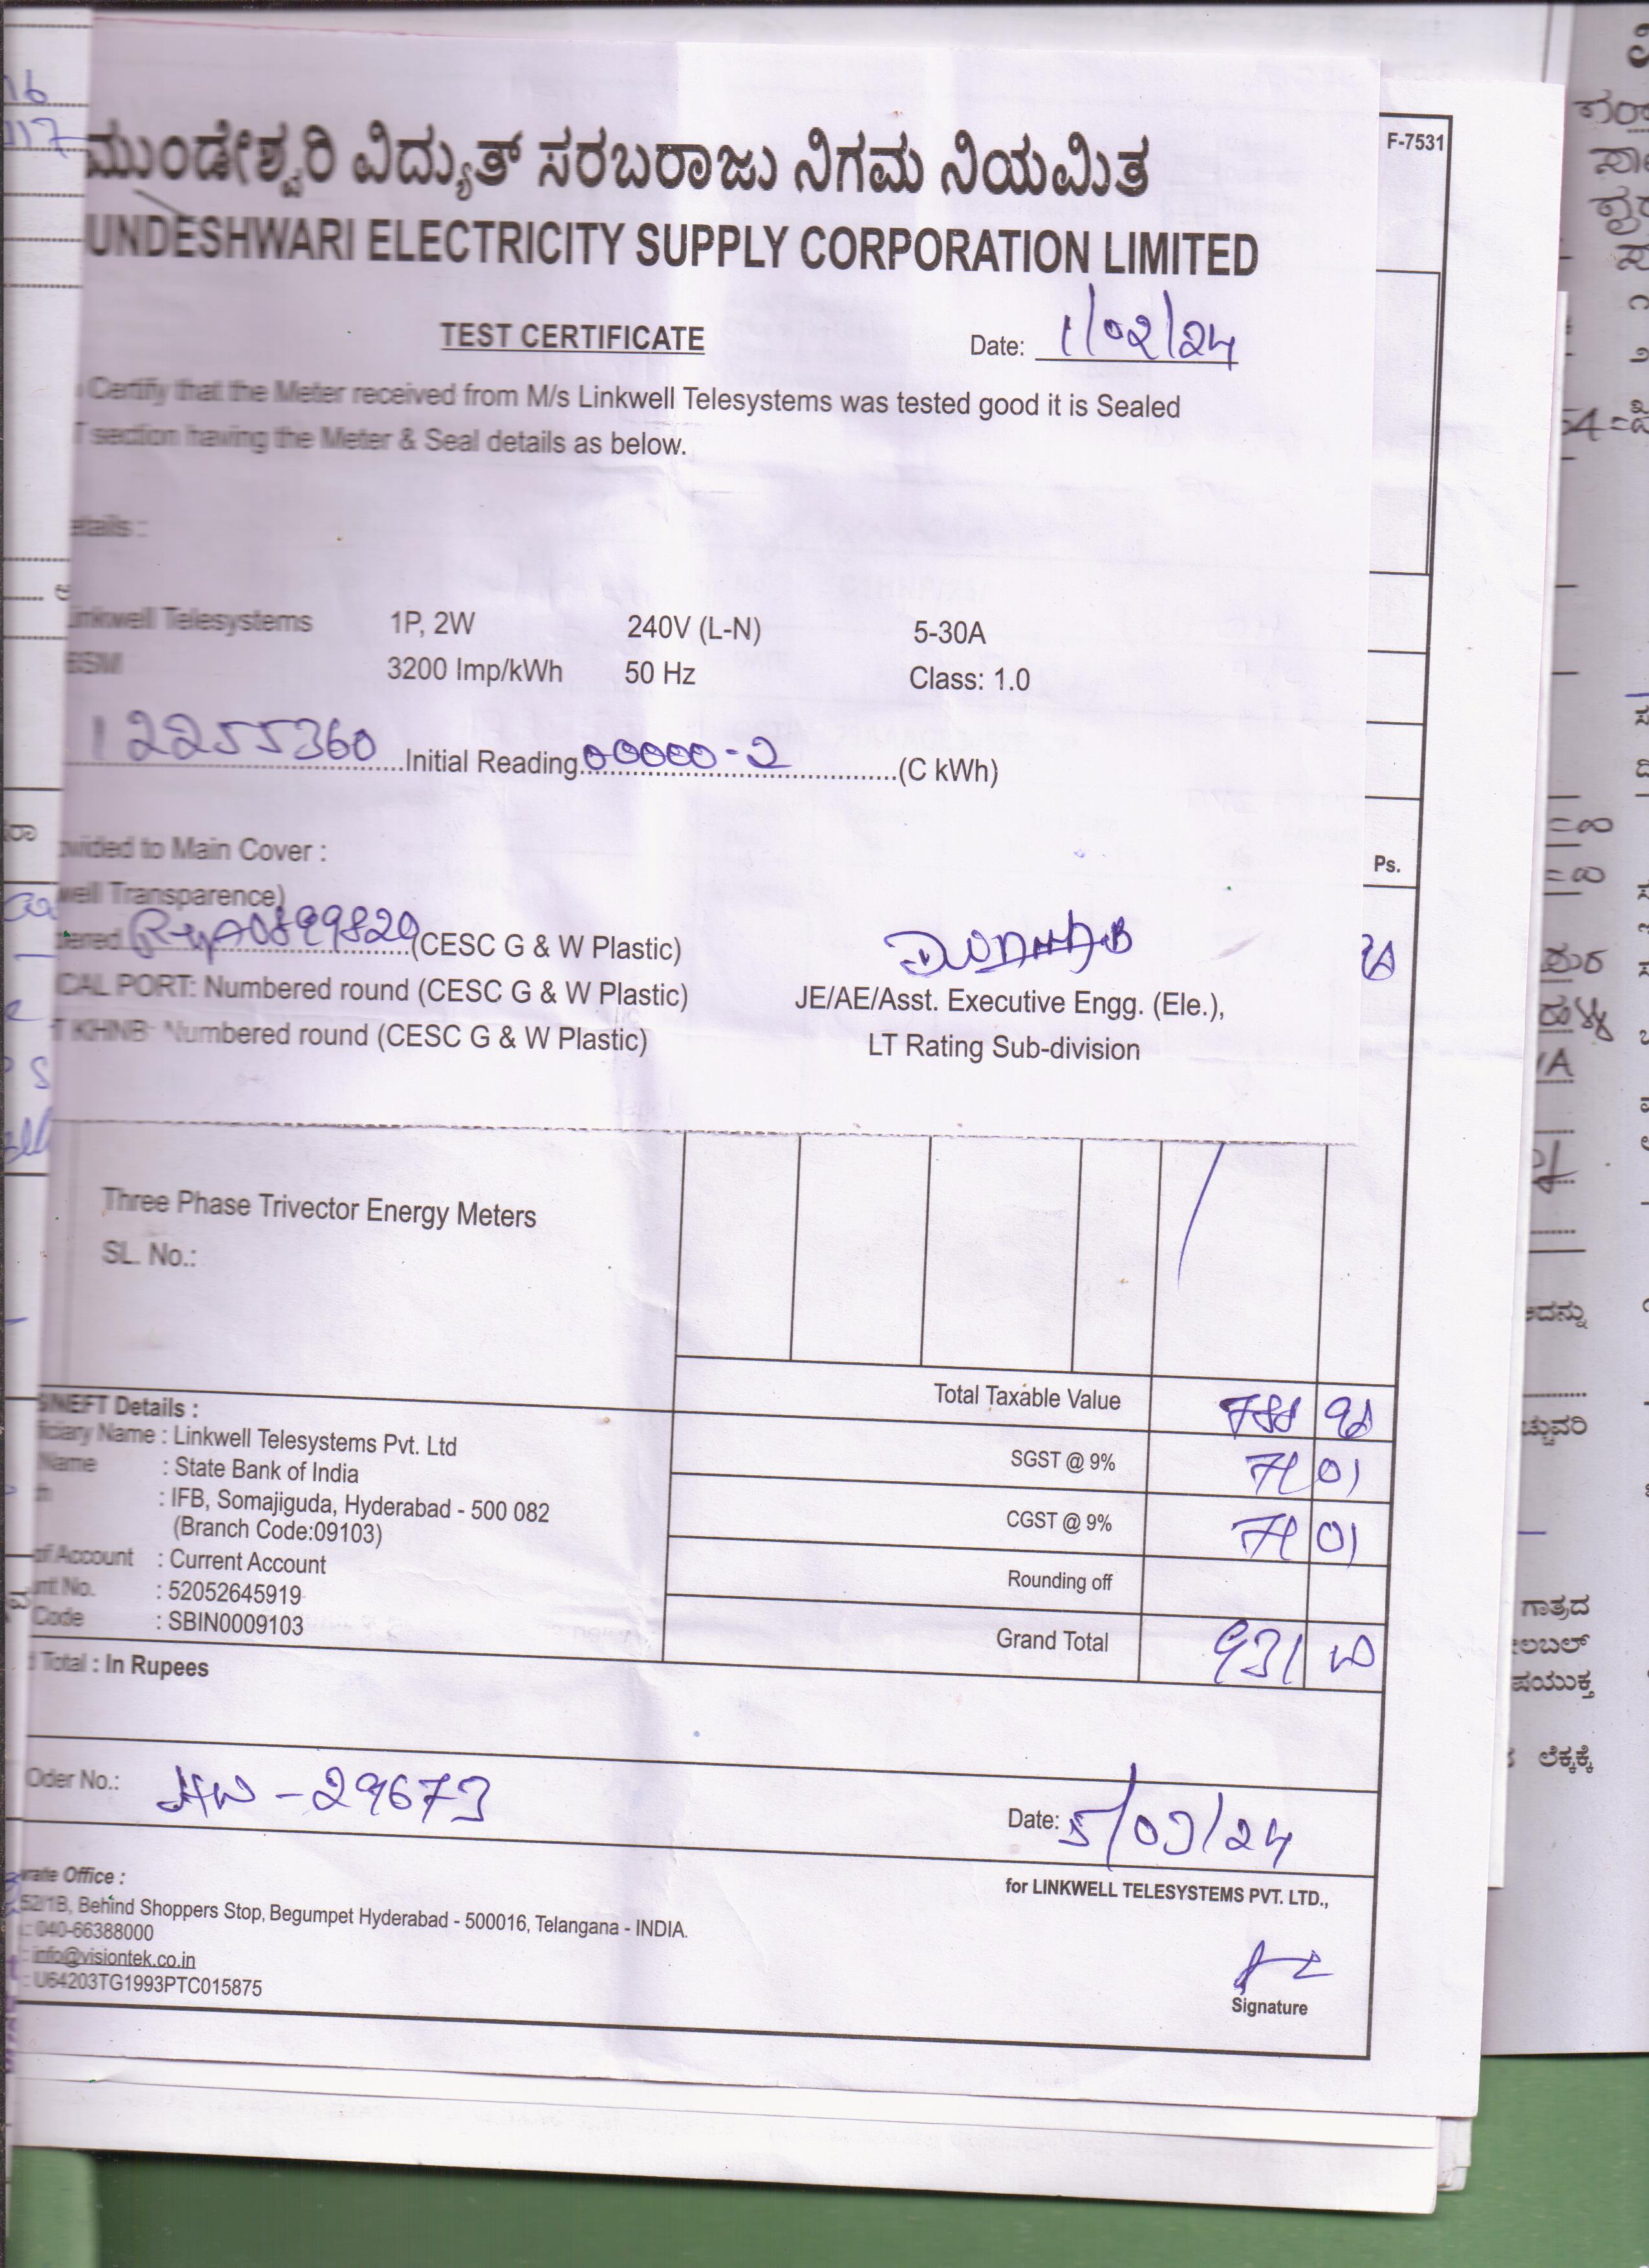 F-7531
ಮುಂಡೇಶ್ವರಿ ವಿದ್ಯುತ್ ಸರಬರಾಜು ನಿಗಮ ನಿಯಮಿತ
UNDESHWARI ELECTRICITY SUPPLY CORPORATION LIMITED
TEST CERTIFICATE Date: 1/02/24
Certify that the Meter received from M/s Linkwell Telesystems was tested good it is Sealed
section having the Meter & Seal details as below.
etails :
inkwell Telesystems 1P, 2W 240V (L-N) 5-30A
BSM 3200 Imp/kWh 50 Hz Class: 1.0
12255360 Initial Reading 00000-2 (C kWh)
ovided to Main Cover :
well Transparence)
Ps.
(CESC G & W Plastic)
CAL PORT: Numbered round (CESC G & W Plastic) JE/AE/Asst. Executive Engg. (Ele.),
T KHNB Numbered round (CESC G & W Plastic) LT Rating Sub-division
Three Phase Trivector Energy Meters
SL. No.:
Total Taxable Value 788 98
SGST @ 9% 71 01
CGST @ 9% 71 01
Rounding off
Grand Total 931 00
S/NEFT Details :
ficiary Name : Linkwell Telesystems Pvt. Ltd
Name : State Bank of India
: IFB, Somajiguda, Hyderabad - 500 082
(Branch Code:09103)
of Account : Current Account
unt No. : 52052645919
Code : SBIN0009103
d Total : In Rupees
Oder No.: HW-29673 Date: 5/03/24
rate Office :
52/1B, Behind Shoppers Stop, Begumpet Hyderabad - 500016, Telangana - INDIA.
: 040-66388000
: info@visiontek.co.in
: U64203TG1993PTC015875
for LINKWELL TELESYSTEMS PVT. LTD.,
Signature
ಗಾತ್ರದ
ಲೆಕ್ಕಕ್ಕೆ